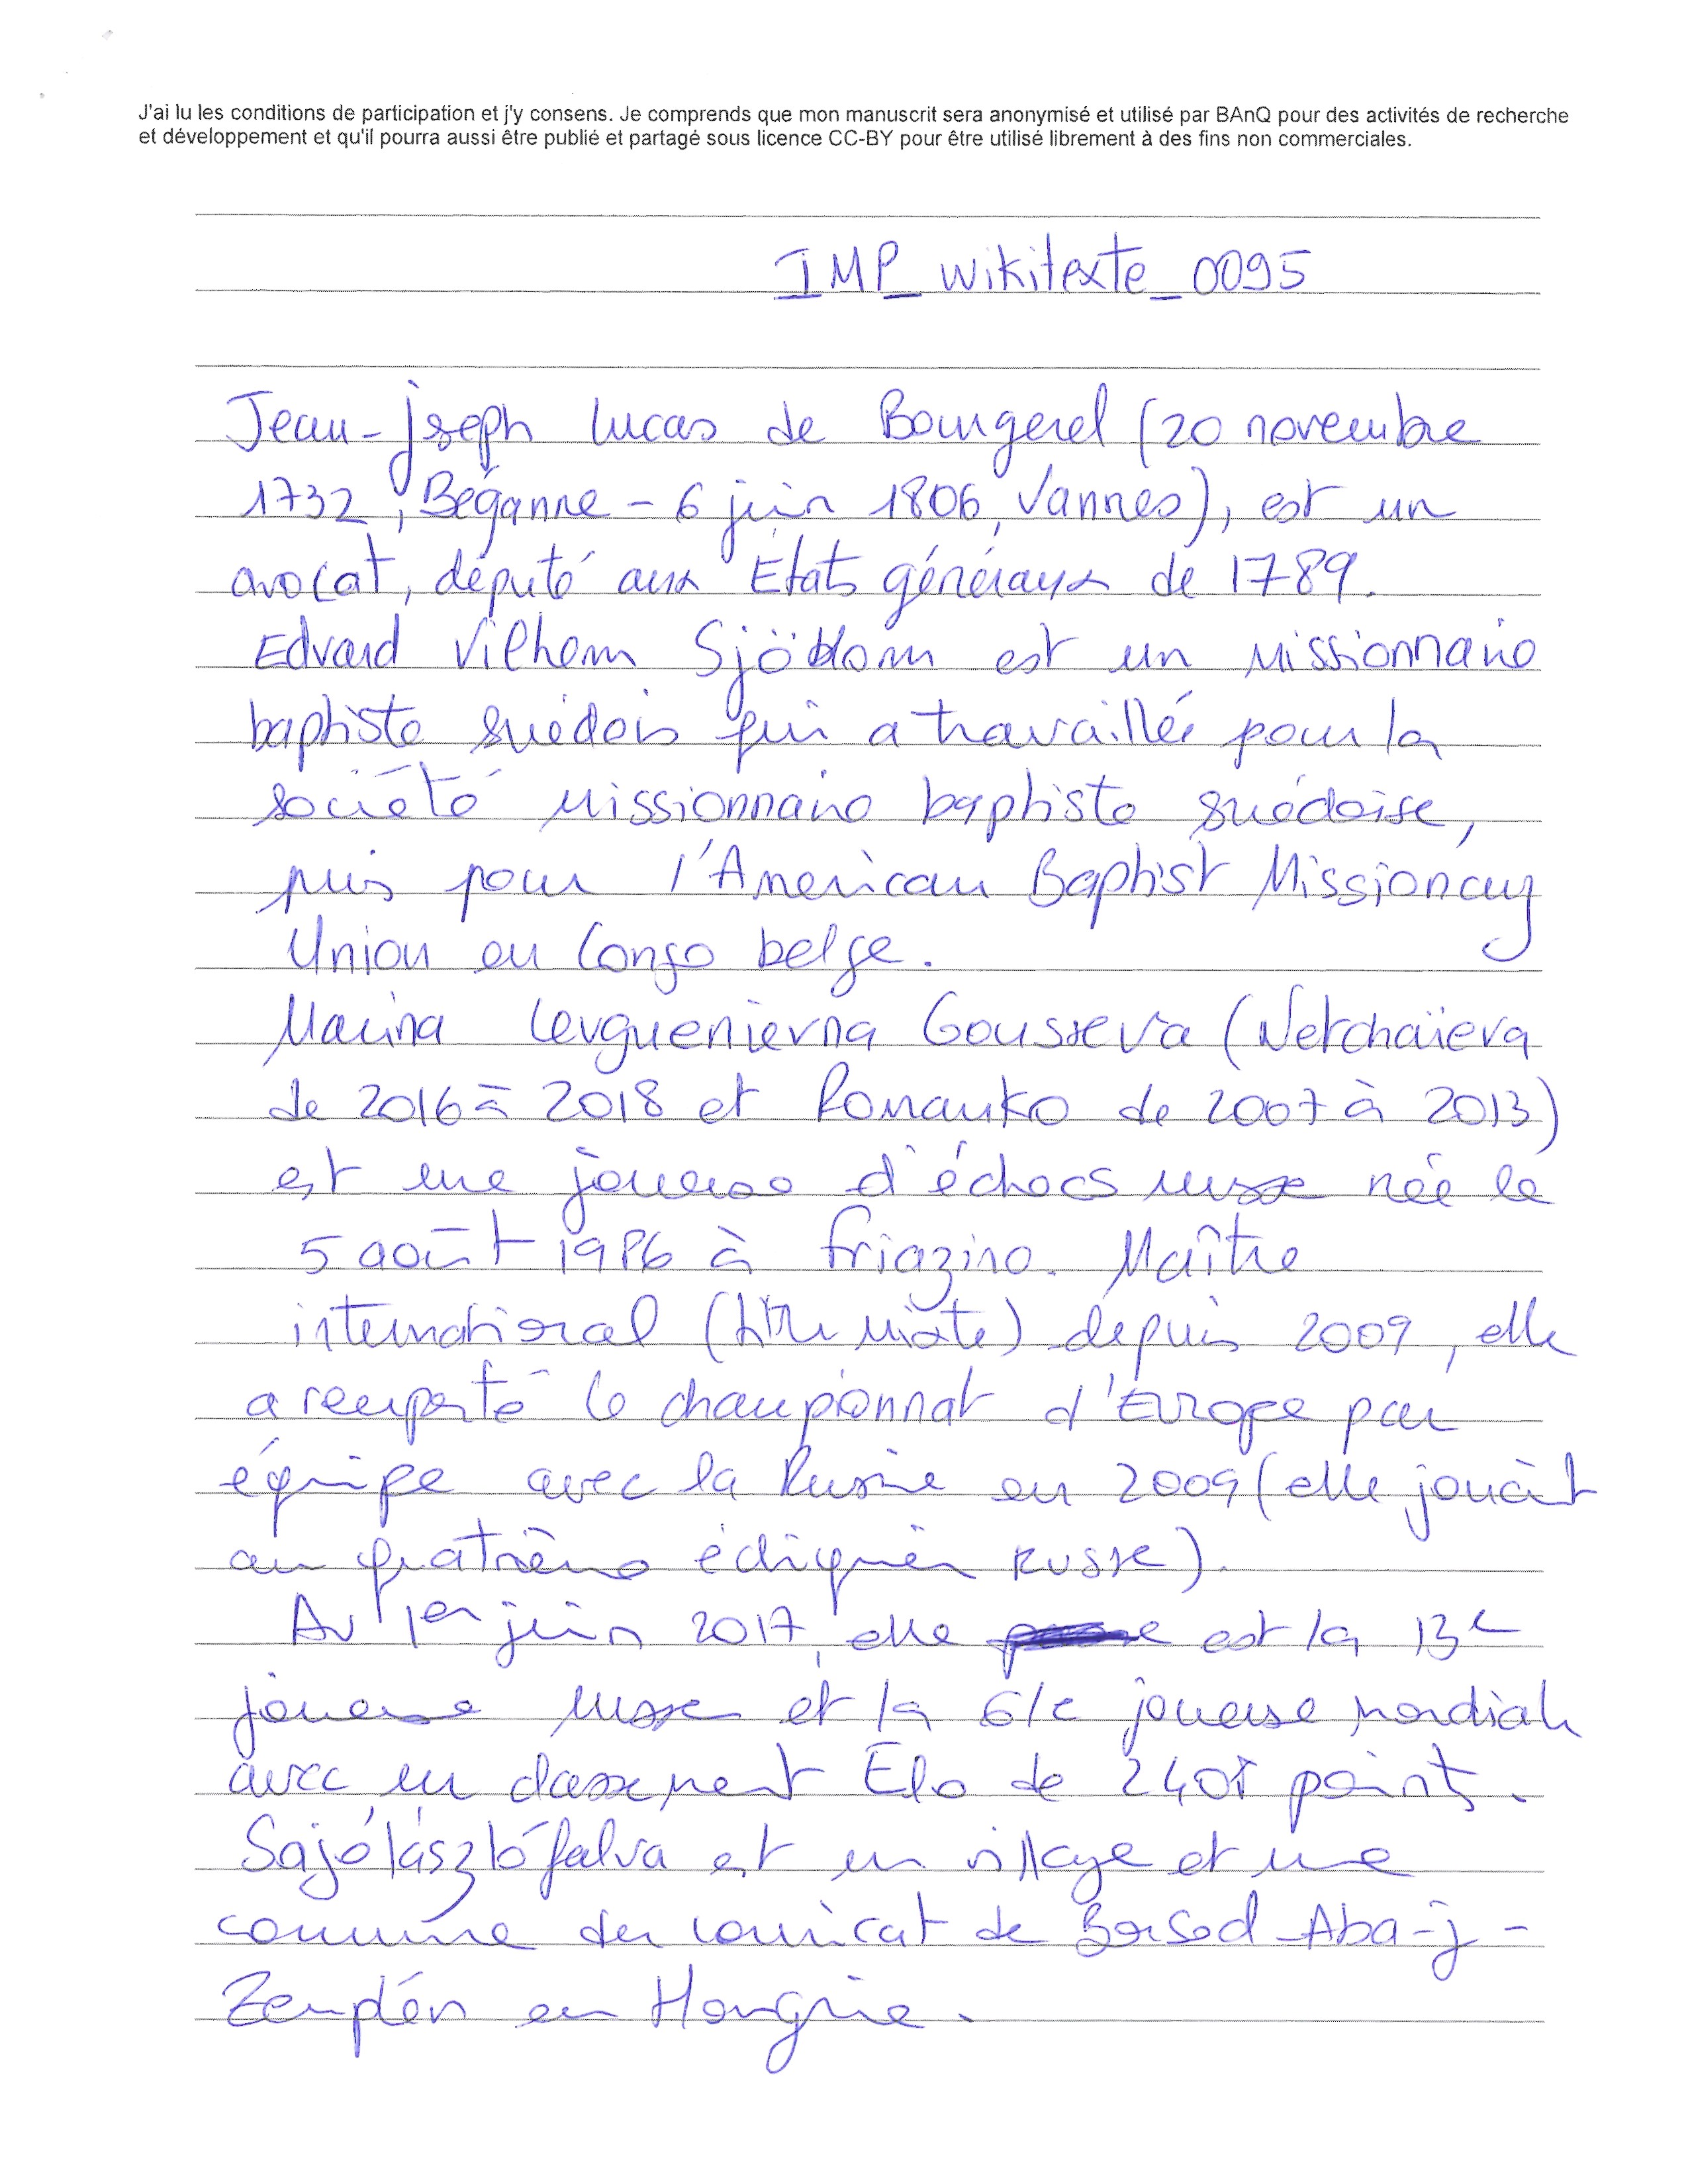 J'ai lu les conditions de participation et j'y consens. Je comprends que mon manuscrit sera anonymisé et utilisé par BAnQ pour des activités de recherche
et développement et qu'il pourra aussi être publié et partagé sous licence CC-BY pour être utilisé librement à des fins non commerciales.
IMP_wikitexte_0095
Jean-Joseph Lucas de Bourgerel (20 novembre
1732, Béganne - 6 juin 1806, Vannes), est un
avocat, député aux États généraux de 1789.
Edvard Vilhem Sjöblom est un missionnaire
baptiste suédois qui a travaillé pour la
société missionnaire baptiste suédoise,
puis pour l'American Baptist Missionary
Union au Congo belge.
Marina Ievguenievna Gousseva (Netchaïeva
de 2016 à 2018 et Romanko de 2007 à 2013)
est une joueuse d'échecs russe née le
5 août 1986 à Friazino. Maître
international (titre mixte) depuis 2009, elle
a remporté le championnat d'Europe par
équipe avec la Russie en 2009 (elle jouait
au quatrième échiquier russe).
Au 1er juin 2017, elle est la 13e
joueuse russe et la 61e joueuse mondiale
avec un classement Elo de points.
Sajólászlófalva est un village et une
commune du comitat de Borsod-Aba-j-
Zemplén en Hongrie.